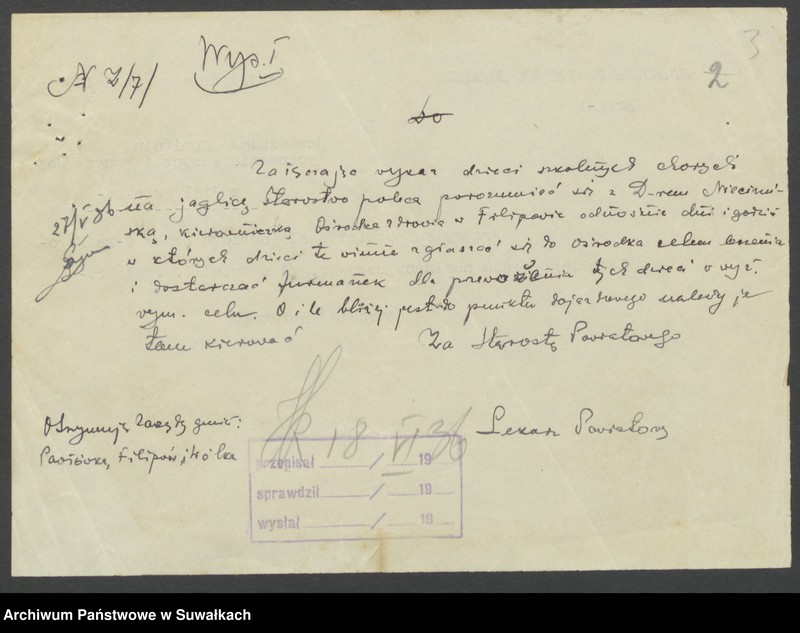 3
2
N Z/7/
Wyp. I
Do
Załączając wykaz dzieci szkolnych chorych
27/V 36 na jaglicę Starostwo poleca porozumieć się z D-rem Niecimi-
ską, kierowniczką Ośrodka zdrowia w Filipowie odnośnie dni i godzin
w których dzieci te winne zgłaszać się do ośrodka celem leczenia
i dostarczać furmanek dla przewożenia tych dzieci w wyż.
wym. celu. O ile bliżej jest do punktu dojazdowego należy je
tam kierować
Za Starostę Powiatowego
Otrzymują Zarządy gmin:
Lekarz Powiatowy
Pawłówka, Filipów i Wólka
18 VI 36
przepisał / 19
sprawdził / 19
wysłał / 19
Archiwum Państwowe w Suwałkach